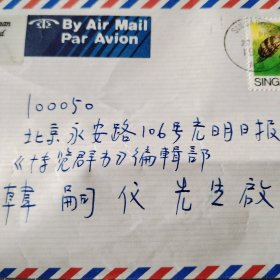 By Air Mail
Par Avion
SING
100050
北京永安路106号光明日报
《博览群书》编辑部
韓嗣仪先生啟